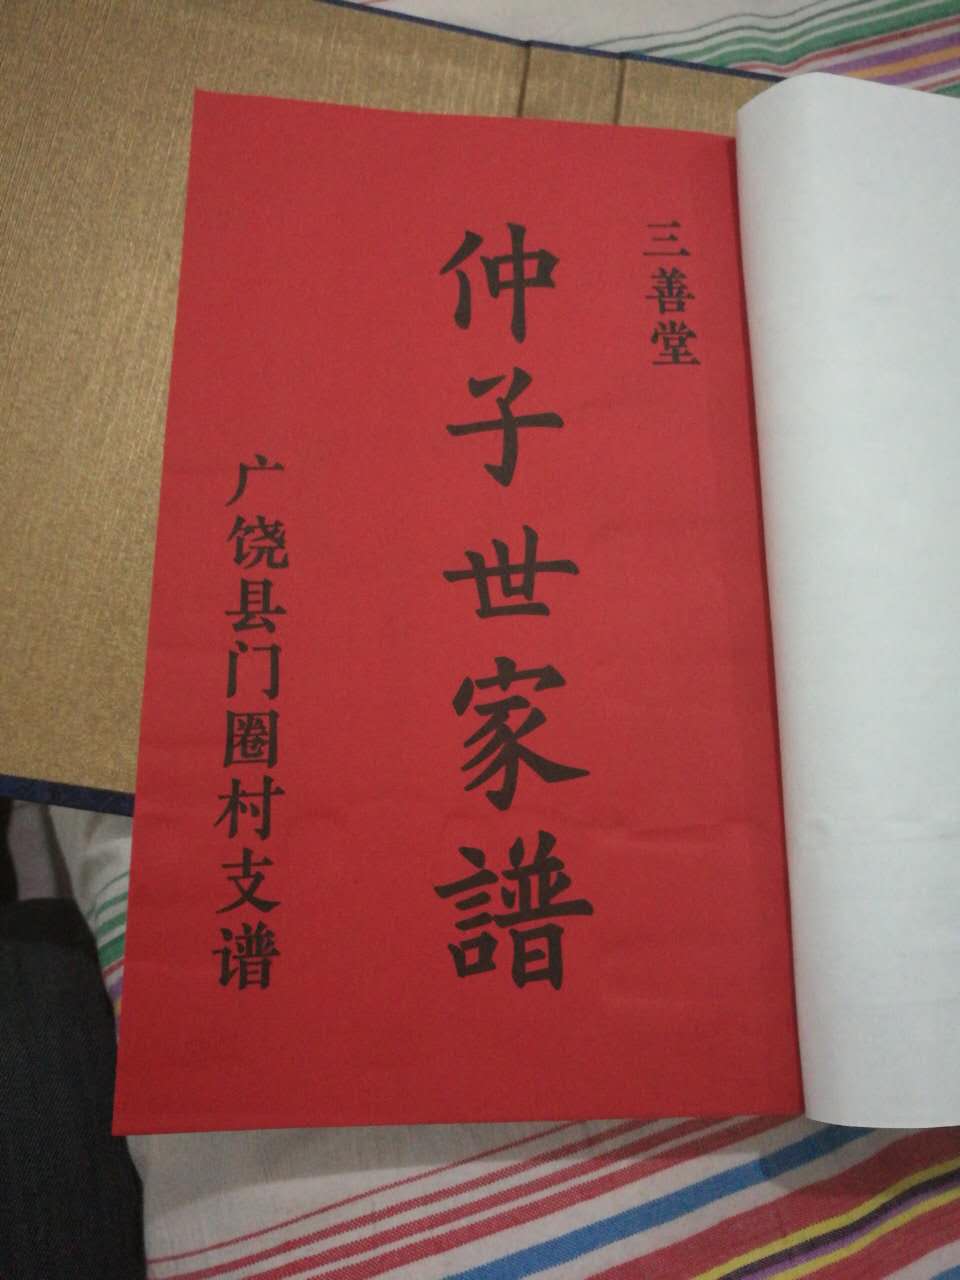 三善堂
仲子世家譜
广饶县门圈村支谱